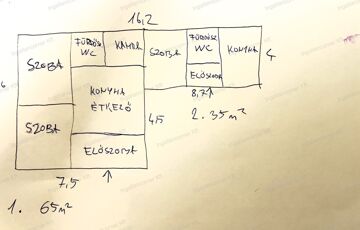 16,2
FÜRDŐ WC
KAMRA
SZOBA
SZOBA
FÜRDŐSZ
WC
KONYHA
4
ELŐSZOBA
KONYHA
ÉTKEZŐ
8,7
SZOBA
4,5
2. 35m²
ELŐSZOBA
7,5
1. 65m²